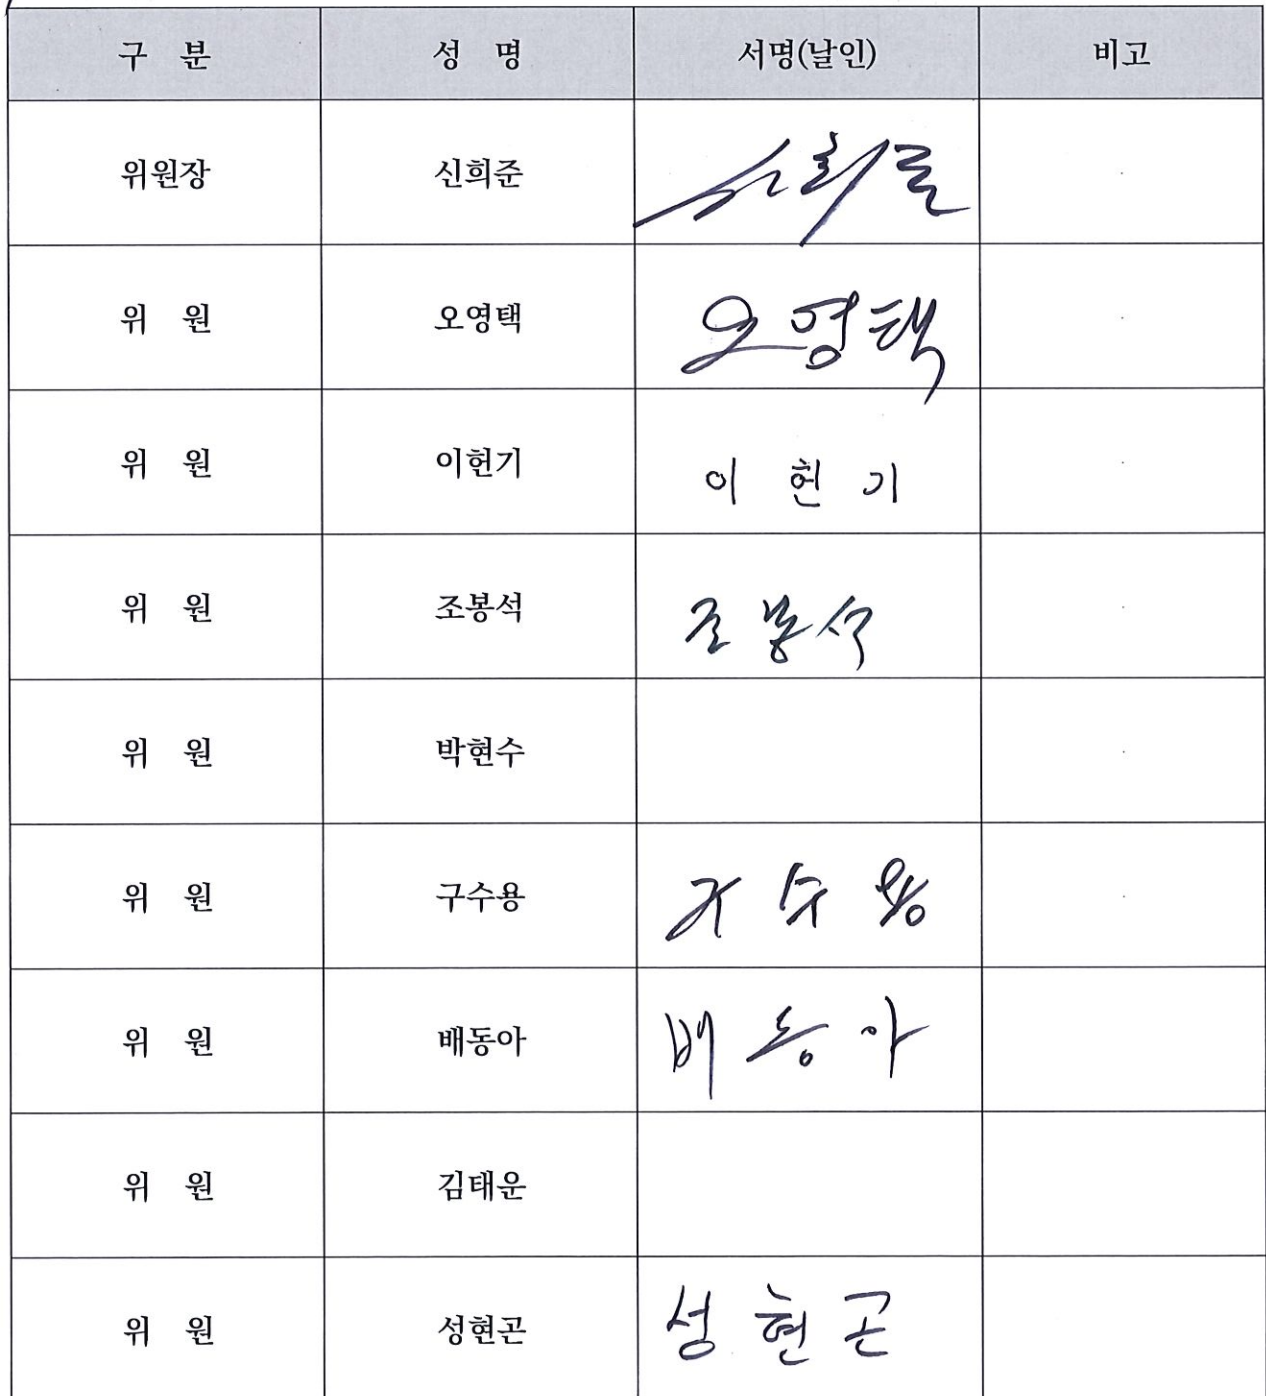 구 분 성 명 서명(날인) 비고
위원장 신희준 신희준
위 원 오영택 오영택
위 원 이헌기 이헌기
위 원 조봉석 조봉석
위 원 박현수
위 원 구수용 구수용
위 원 배동아 배동아
위 원 김태운
위 원 성현곤 성현곤